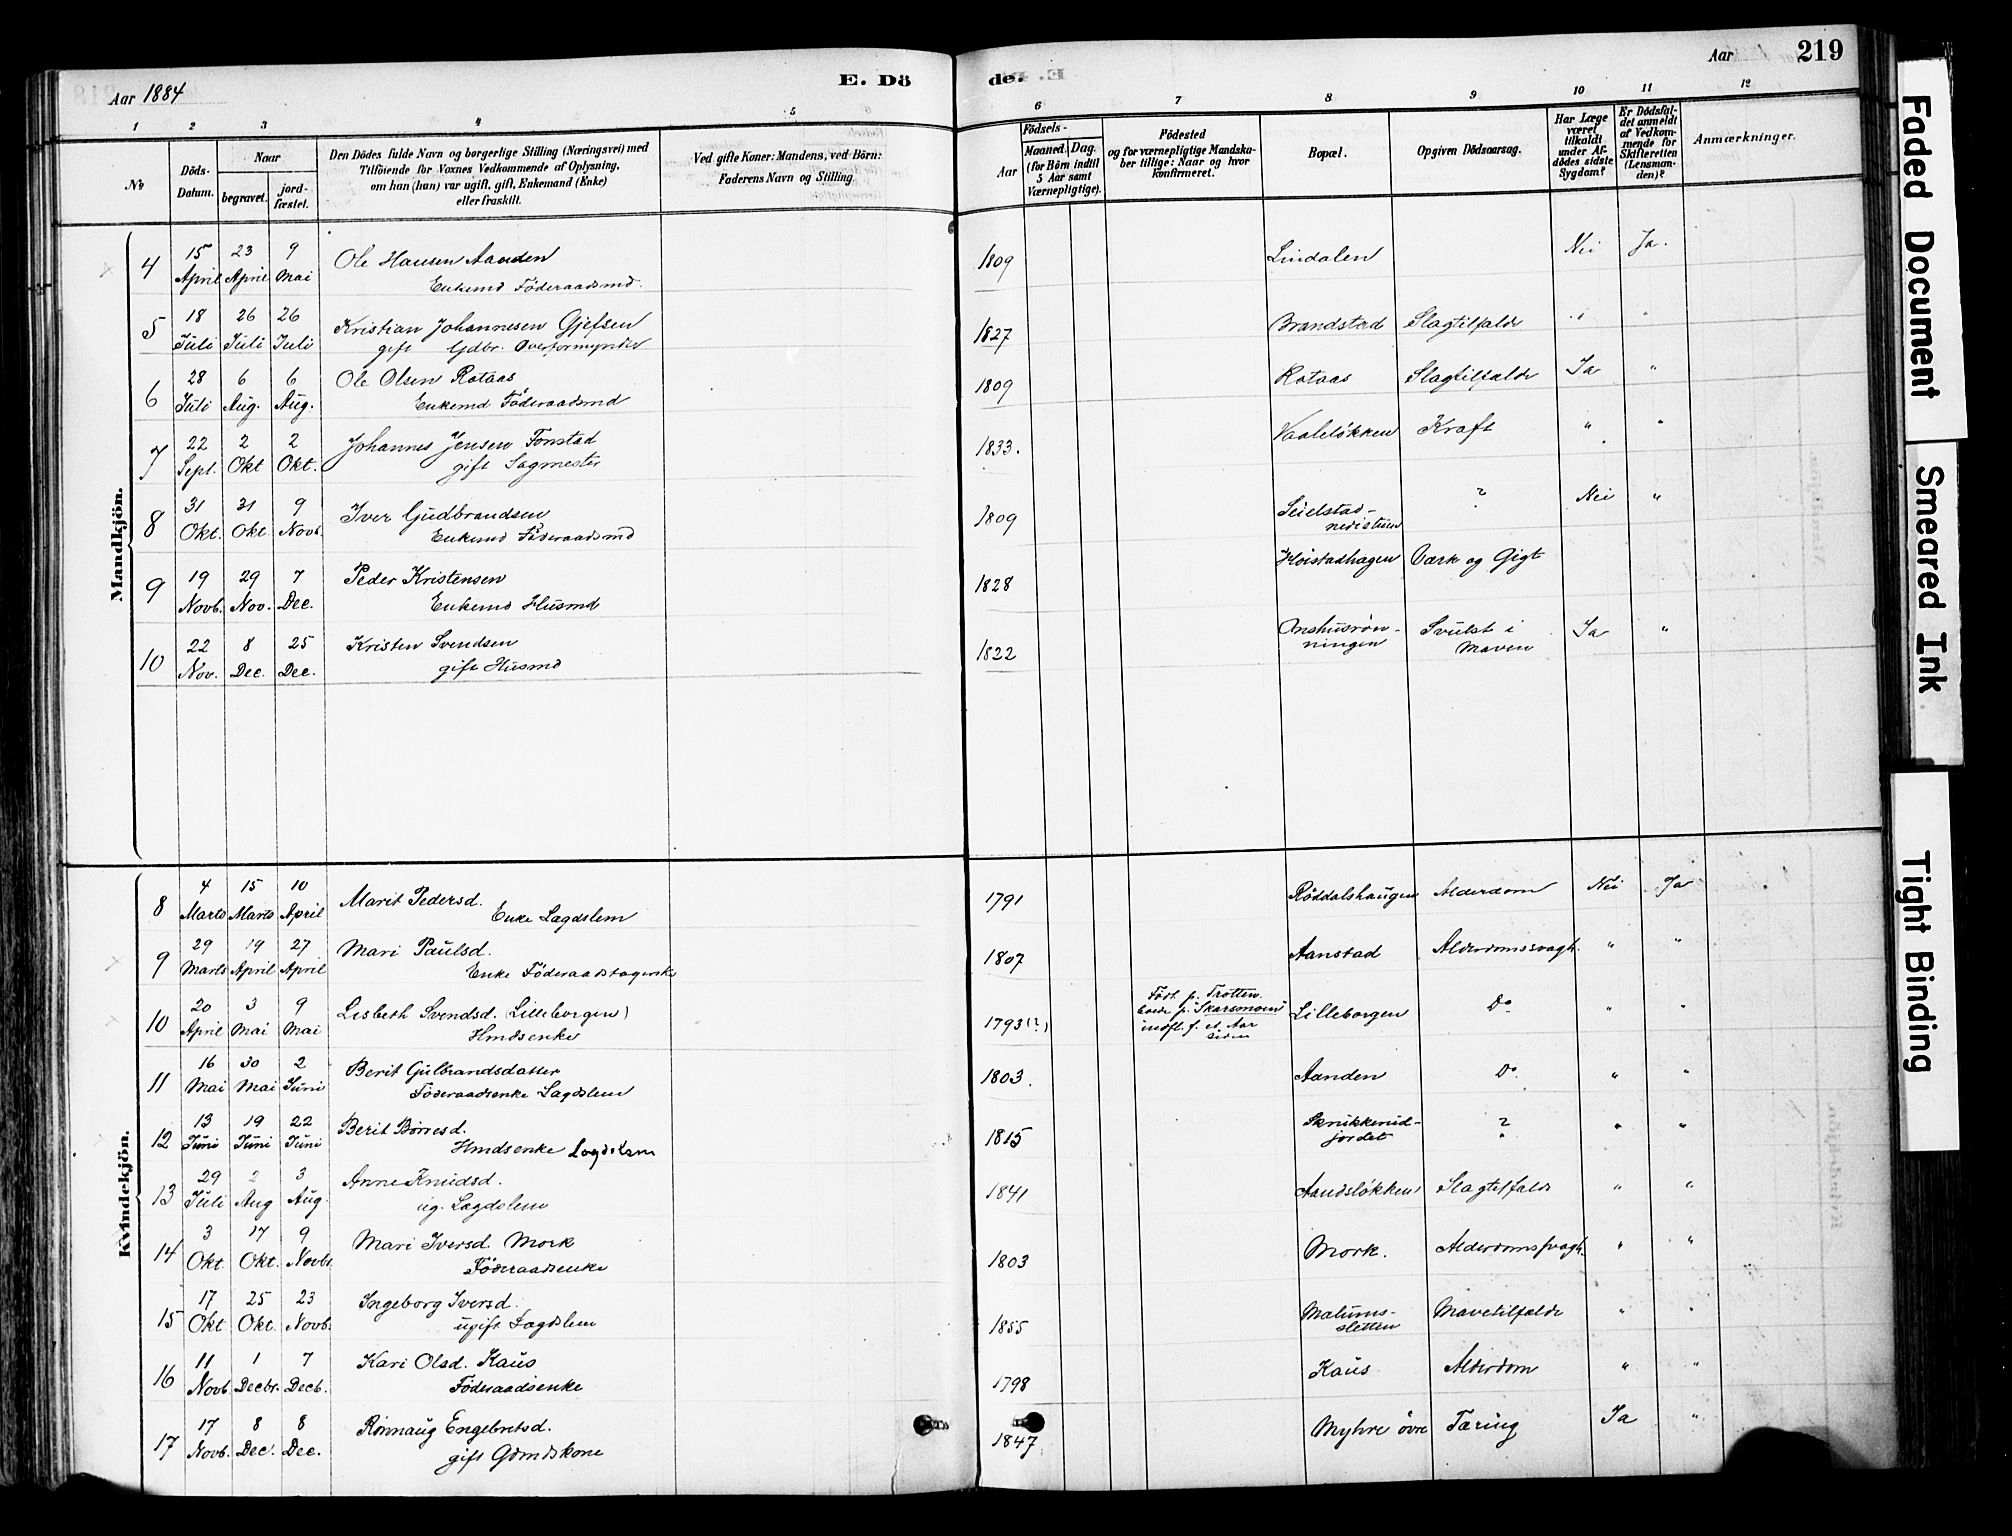 Aar 1884 E. Dö de. Aar 219
1 2 3 4 5 6 7 8 9 10 11 12
No
Döds-Datum.
Naar
begravet. jordfæstet.
Den Dödes fulde Navn og borgerlige Stilling (Næringsvei) med
Tilföiende for Voxnes Vedkommende af Oplysning,
om han (hun) var ugift, gift, Enkemand (Enke)
eller fraskilt.
Ved gifte Koner: Mandens, ved Börn:
Faderens Navn og Stilling.
Aar
Födsels-
Maaned. Dag.
(for Börn indtil
5 Aar samt
Værnepligtige).
Födested
og for værnepligtige Mandskaber tillige: Naar og hvor
konfirmeret.
Bopæl.
Opgiven Dödsaarsag.
Har Læge
været
tilkaldt
under Afdödes sidste
Sygdom?
Er Dödsfaldet anmeldt
af Vedkommende for
Skifteretten
(Lensmanden)?
Anmærkninger.
Mandkjön.
4 15 April 23 April 9 Mai Ole Hansen Aanden 1809 Lindalen Nei Ja.
Enkemd Föderaadsmd.
5 18 Juli 26 Juli 26 Juli Kristian Johannesen Gjefsen 1827 Brandstad Slagtilfælde " "
gift Gdbr. Overformynder
6 28 Juli 6 Aug. 6 Aug. Ole Olsen Rotaas 1809 Rotaas Slagtilfælde Ja "
Enkemd Föderaadsmd
7 22 Sept. 2 Okt 2 Okt. Johannes Jensen Tonstad 1833. Vaaleløkken Kræft " "
gift Sagmester
8 31 Okt. 31 Okt 9 Novb. Iver Gudbrandsen 1809 Seielstad-nedistuen ? Nei "
Enkemd Föderaadsmd
9 19 Novb. 29 Nov. 7 Dec. Peder Kristensen 1828 Høistadhagen Værk og Gigt
Enkemd Husmd
10 22 Nov. 8 Dec. 25 Dec. Kristen Svendsen 1822 Onshusrønningen Svulst i Maven Ja "
gift Husmd
Kvindekjön.
8 4 Marts 15 Marts 10 April Marit Pedersd. 1791 Røddalshaugen Alderdom Nei Ja
Enke Lægdslem
9 29 Marts 19 April 27 April Mari Paulsd. 1807 Aanstad Alderdomssvagh. " "
Enke Föderaadstagerske
10 20 April 3 Mai 9 Mai Lisbeth Svendsd. (Lilleborgen) 1793(?) Födt p. Trotten. boede p. Skarsmoen indfl. f. et Aar siden Lilleborgen Do " "
Hmdsenke
11 16 Mai 30 Mai 2 Juni Berit Gulbrandsdatter 1803. Aanden Do " "
Föderaadsenke Lægdslem
12 13 Juni 19 Juni 22 Juni Berit Børresd. 1815 Skrukkerud-jordet ? " "
Hmdsenke Lægdslem
13 29 Juli 2 Aug 3 Aug. Anne Knudsd. 1841 Aandsløkken Slagtilfælde " "
ug. Lægdslem
14 3 Okt. 17 Okt. 9 Novbr. Mari Iversd. Mork 1803 Mork. Alderdomssvagh. " "
Föderaadsenke
15 17 Okt 25 Okt. 23 Novb. Ingeborg Iversd. 1855 Malums-sletten Mavetilfælde " "
ugift Lægdslem
16 11 Novb. 1 Decbr. 7 Decb. Kari Olsd. Kaus 1798 Kaus Alderdom " "
Föderaadsenke
17 17 Novb. 8 Dec. 8 Dec. Rønnaug Engebretsd. 1847 Myhre øvre Tæring Ja "
gift Gdmdskone
Faded Document
Smeared Ink
Tight Binding